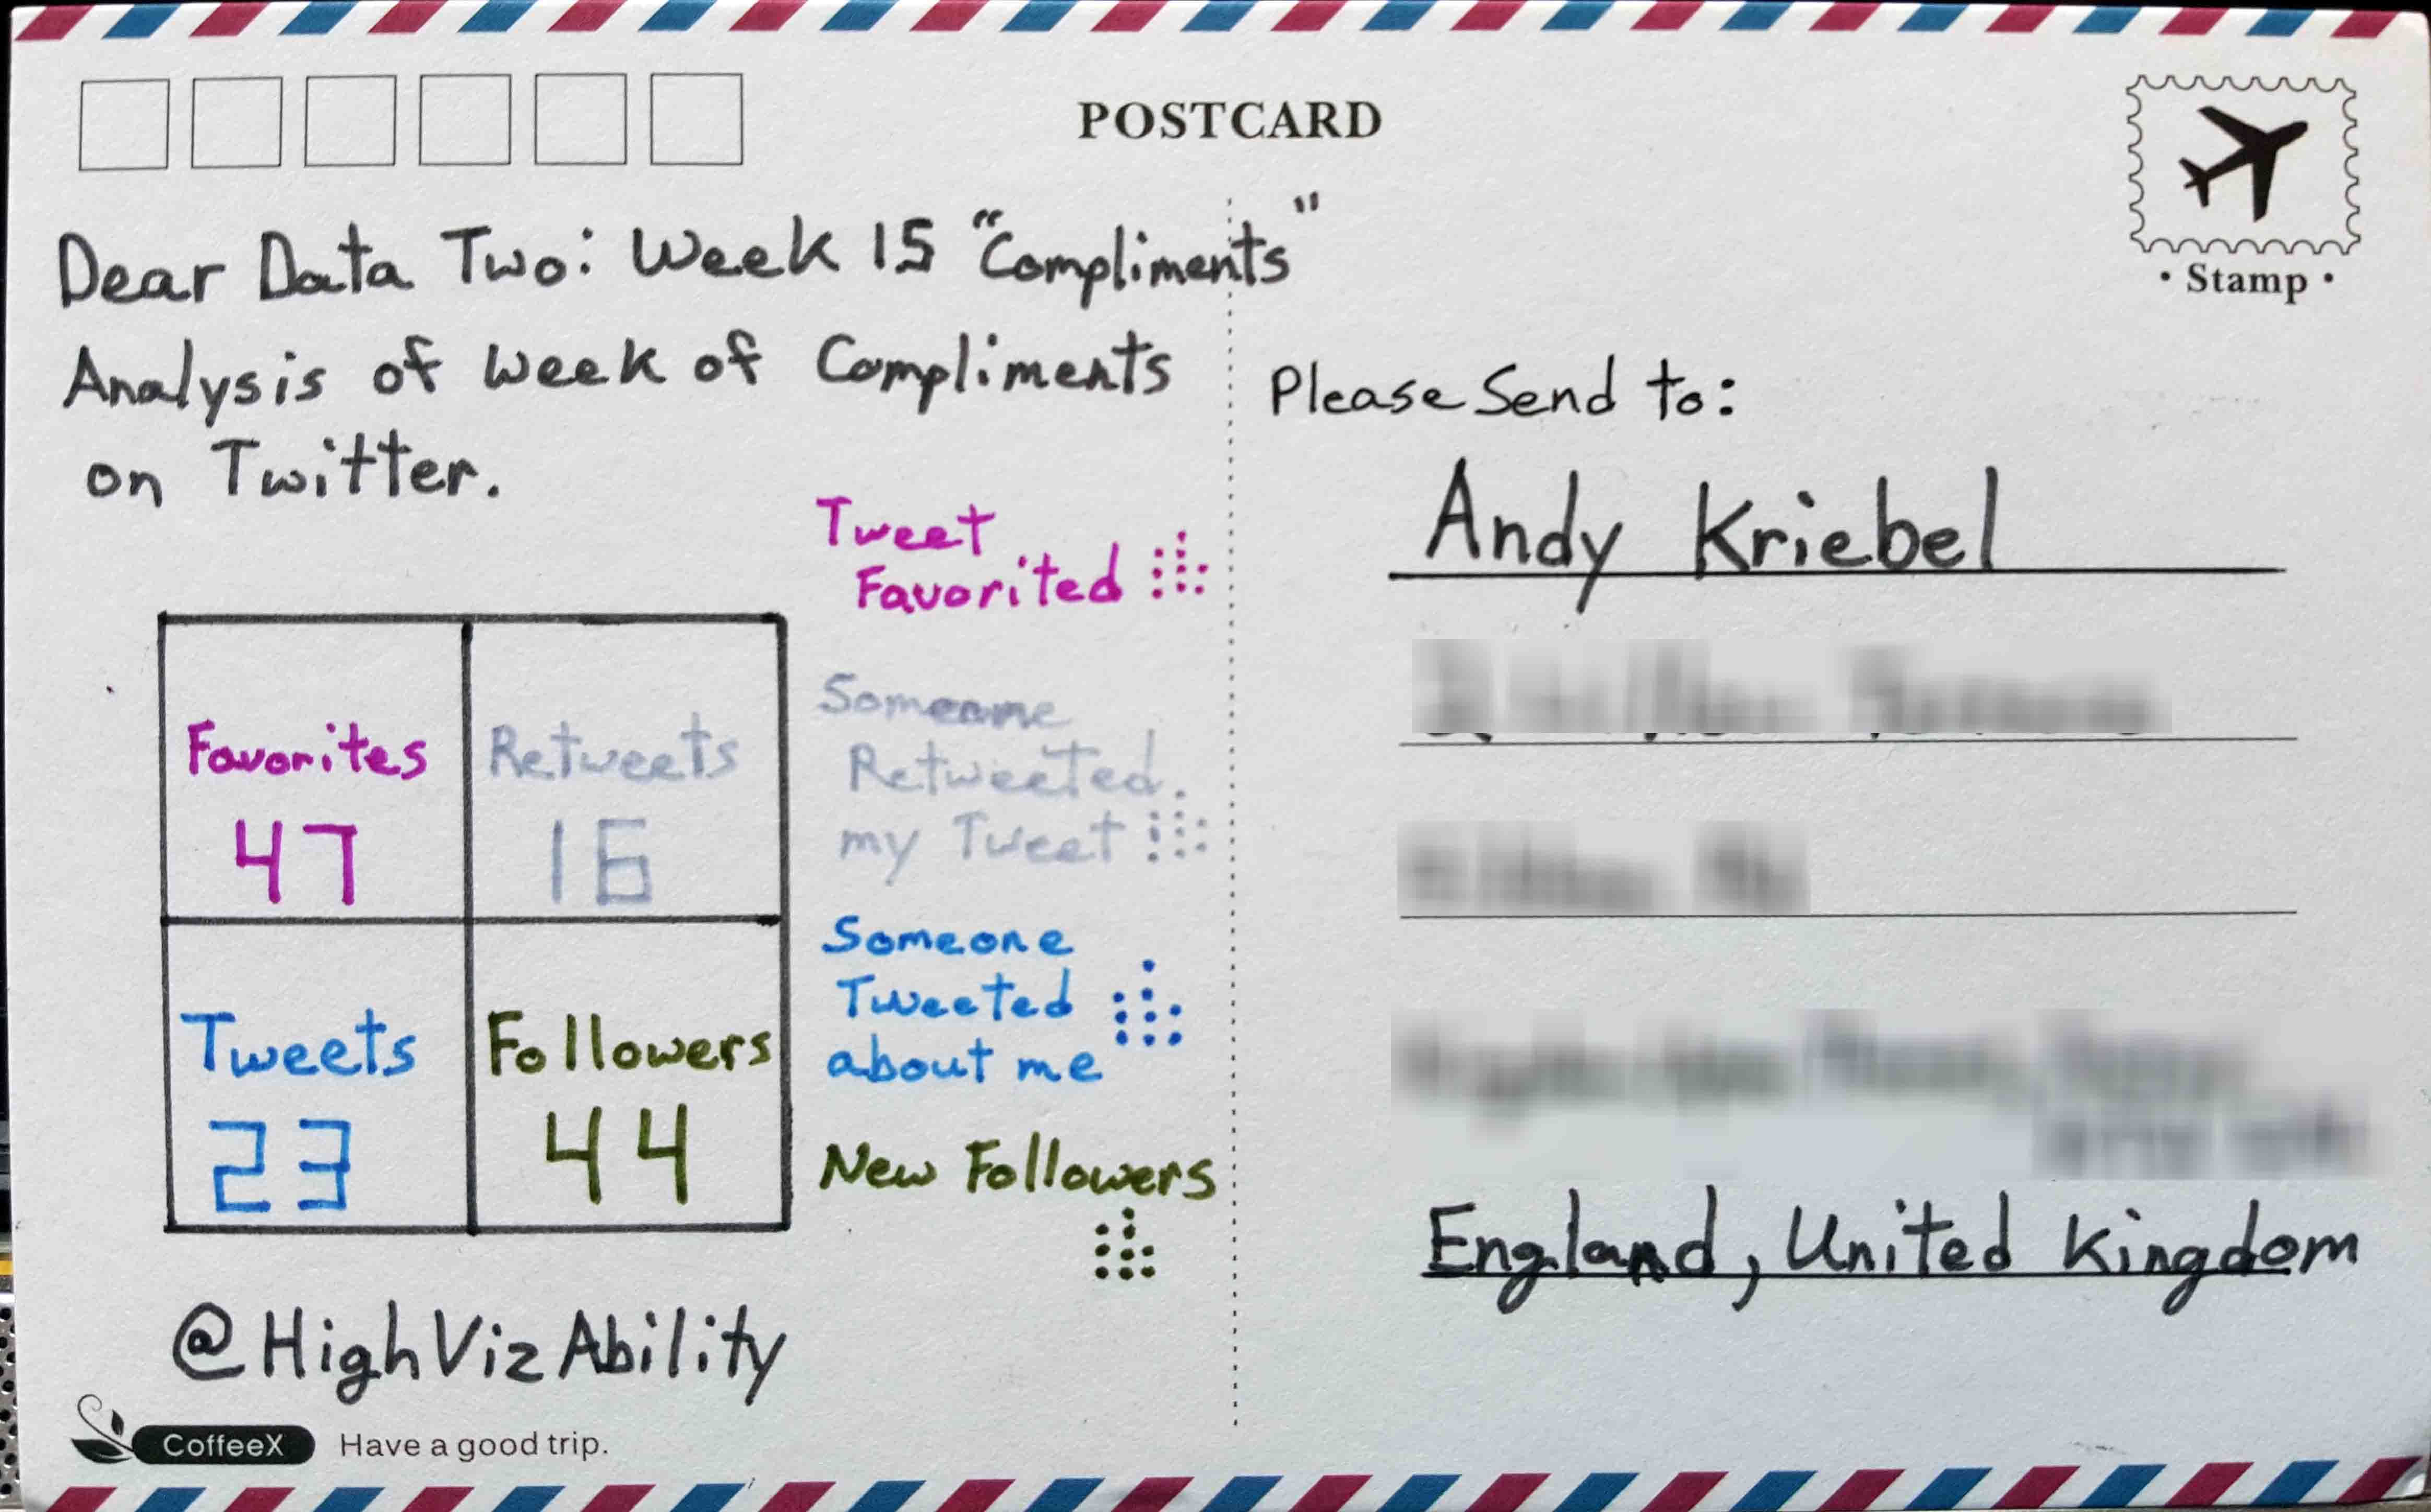 POSTCARD
• Stamp •
Dear Data Two: Week 15 "Compliments"
Analysis of Week of Compliments
on Twitter.
Tweet
Favorited
Someone
Retweeted
my Tweet
Someone
Tweeted
about me
New Followers
Favorites
47
Retweets
16
Tweets
23
Followers
44
@HighVizAbility
CoffeeX Have a good trip.
Please Send to:
Andy Kriebel
England, United Kingdom